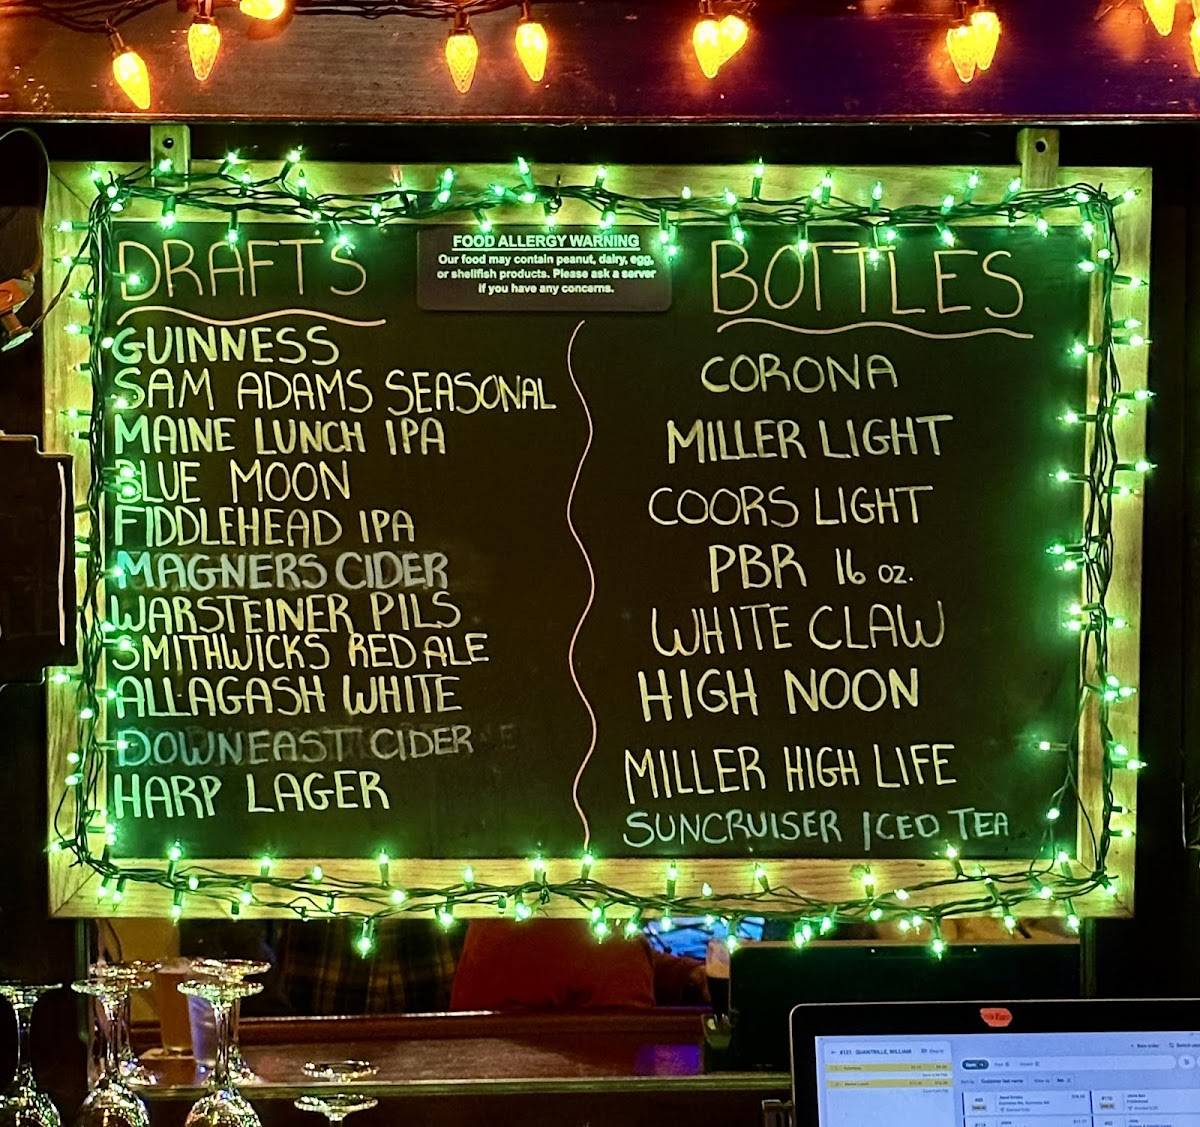 DRAFTS
GUINNESS
SAM ADAMS SEASONAL
MAINE LUNCH IPA
BLUE MOON
FIDDLEHEAD IPA
MAGNERS CIDER
WARSTEINER PILS
SMITHWICKS RED ALE
ALLAGASH WHITE
DOWNEAST CIDER
HARP LAGER
FOOD ALLERGY WARNING
Our food may contain peanut, dairy, egg,
or shellfish products. Please ask a server
if you have any concerns.
BOTTLES
CORONA
MILLER LIGHT
COORS LIGHT
PBR 16 OZ.
WHITE CLAW
HIGH NOON
MILLER HIGH LIFE
SUNCRUISER ICED TEA